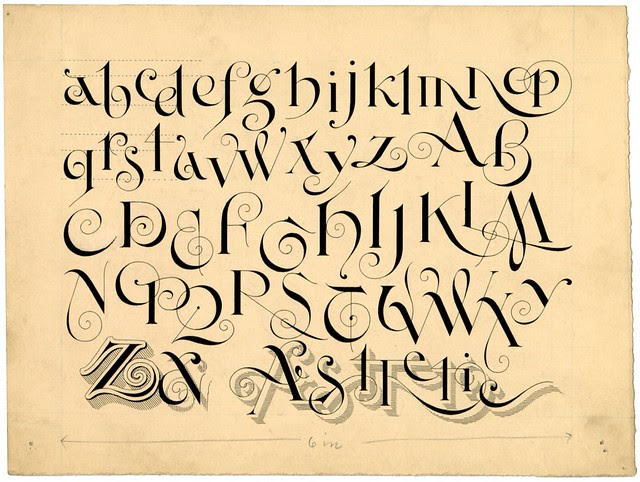 abcdefghijklmnop
qrstuvwxyzAB
CDEFGHIJKLM
NOPQRSTUVWXY
Z Æsthetic
6 in